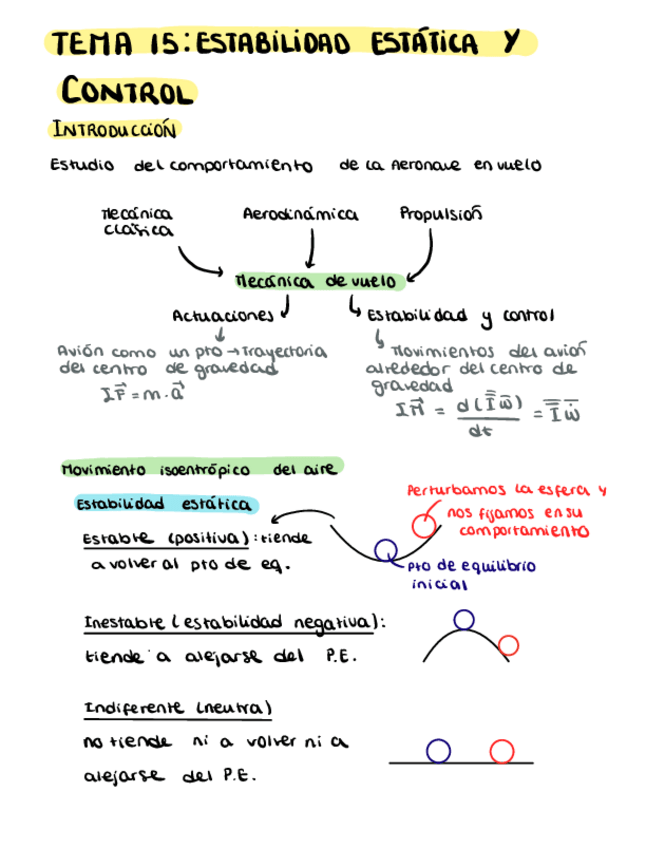 TEMA 15: ESTABILIDAD ESTÁTICA Y
CONTROL
INTRODUCCIÓN
Estudio del comportamiento de la Aeronave en vuelo
Mecánica
clásica
Aerodinámica
Propulsión
Mecánica de vuelo
Actuaciones
Estabilidad y control
Avión como un pto → Trayectoria
del centro de gravedad
ΣF⃗ = m · a⃗
Movimientos del avión
alrededor del centro de
gravedad
ΣM⃗ = d(I̿ ω̅)/dt = I̿ ω̅̇
Movimiento isoentrópico del aire
Estabilidad estática
Estable (positiva): tiende
a volver al pto de eq.
Perturbamos la esfera y
nos fijamos en su
comportamiento
Pto de equilibrio
inicial
Inestable (estabilidad negativa):
tiende a alejarse del P.E.
Indiferente (neutra)
no tiende ni a volver ni a
alejarse del P.E.